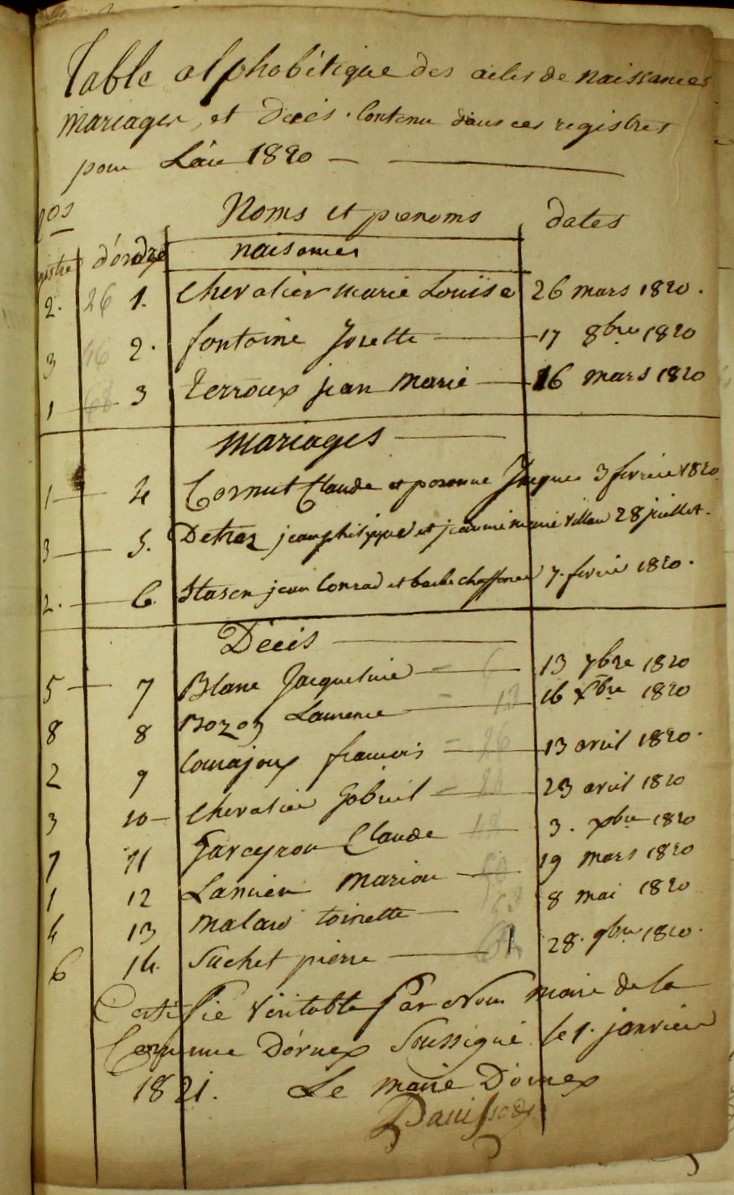 Table alphabétique des actes de naissances
mariages, et Décès contenu dans ces registres
pour L'an 1820
Nos Noms et prenoms dates
d'ordre naissances
2. 26 1. Chevalier marie Louïse 26 mars 1820.
3 2. fontaine Josette 17 8bre 1820
1 3 Terroux jean Marie 16 mars 1820
Mariages
1 4 Cornut Claude et 3 fevrier 1820
3 5. Detraz jean philippe et jeanne marie 28 juillet.
2. 6. Stasen jean Conrad et 7. fevrier 1820.
Décès
5 7 Blanc Jacqueline 13 7bre 1820
8 8 Bozon Laurence 16 Xbre 1820
2 9 Courajoux francois 13 avril 1820.
3 10 Chevalier Gabriel 23 avril 1820
7 11 Garceyron Claude 3. Xbre 1820
1 12 Marion 19 mars 1820
4 13 toinette 8 mai 1820
6 14. Suchet pierre 28. 9bre 1820.
Certifié Véritable Par Nous Maire de la
Commune D'ornex Soussigné le 1. janvier
1821. Le maire D'ornex